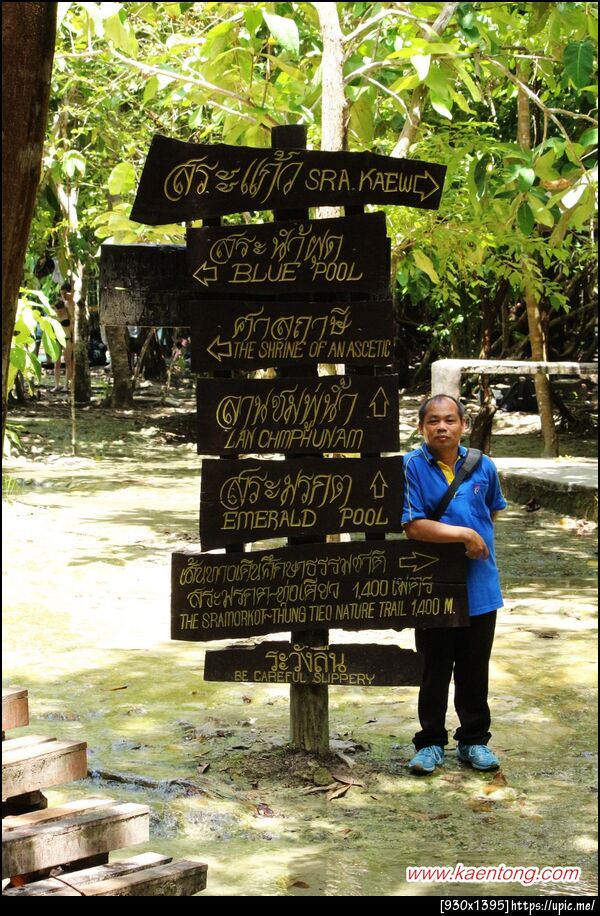 สระแก้ว SRA. KAEW
สระน้ำผุด
BLUE POOL
ศาลฤาษี
THE SHRINE OF AN ASCETIC
ลานชมพู่น้ำ
LAN CHMPHUNAM
สระมรกต
EMERALD POOL
เส้นทางเดินศึกษาธรรมชาติ
สระมรกต-ทุ่งเตียว 1,400 เมตร
THE SRAMORKOT-THUNG TIEO NATURE TRAIL 1,400 M.
ระวังลื่น
BE CAREFUL SLIPPERY
www.kaentong.com
[930x1395]https://upic.me/